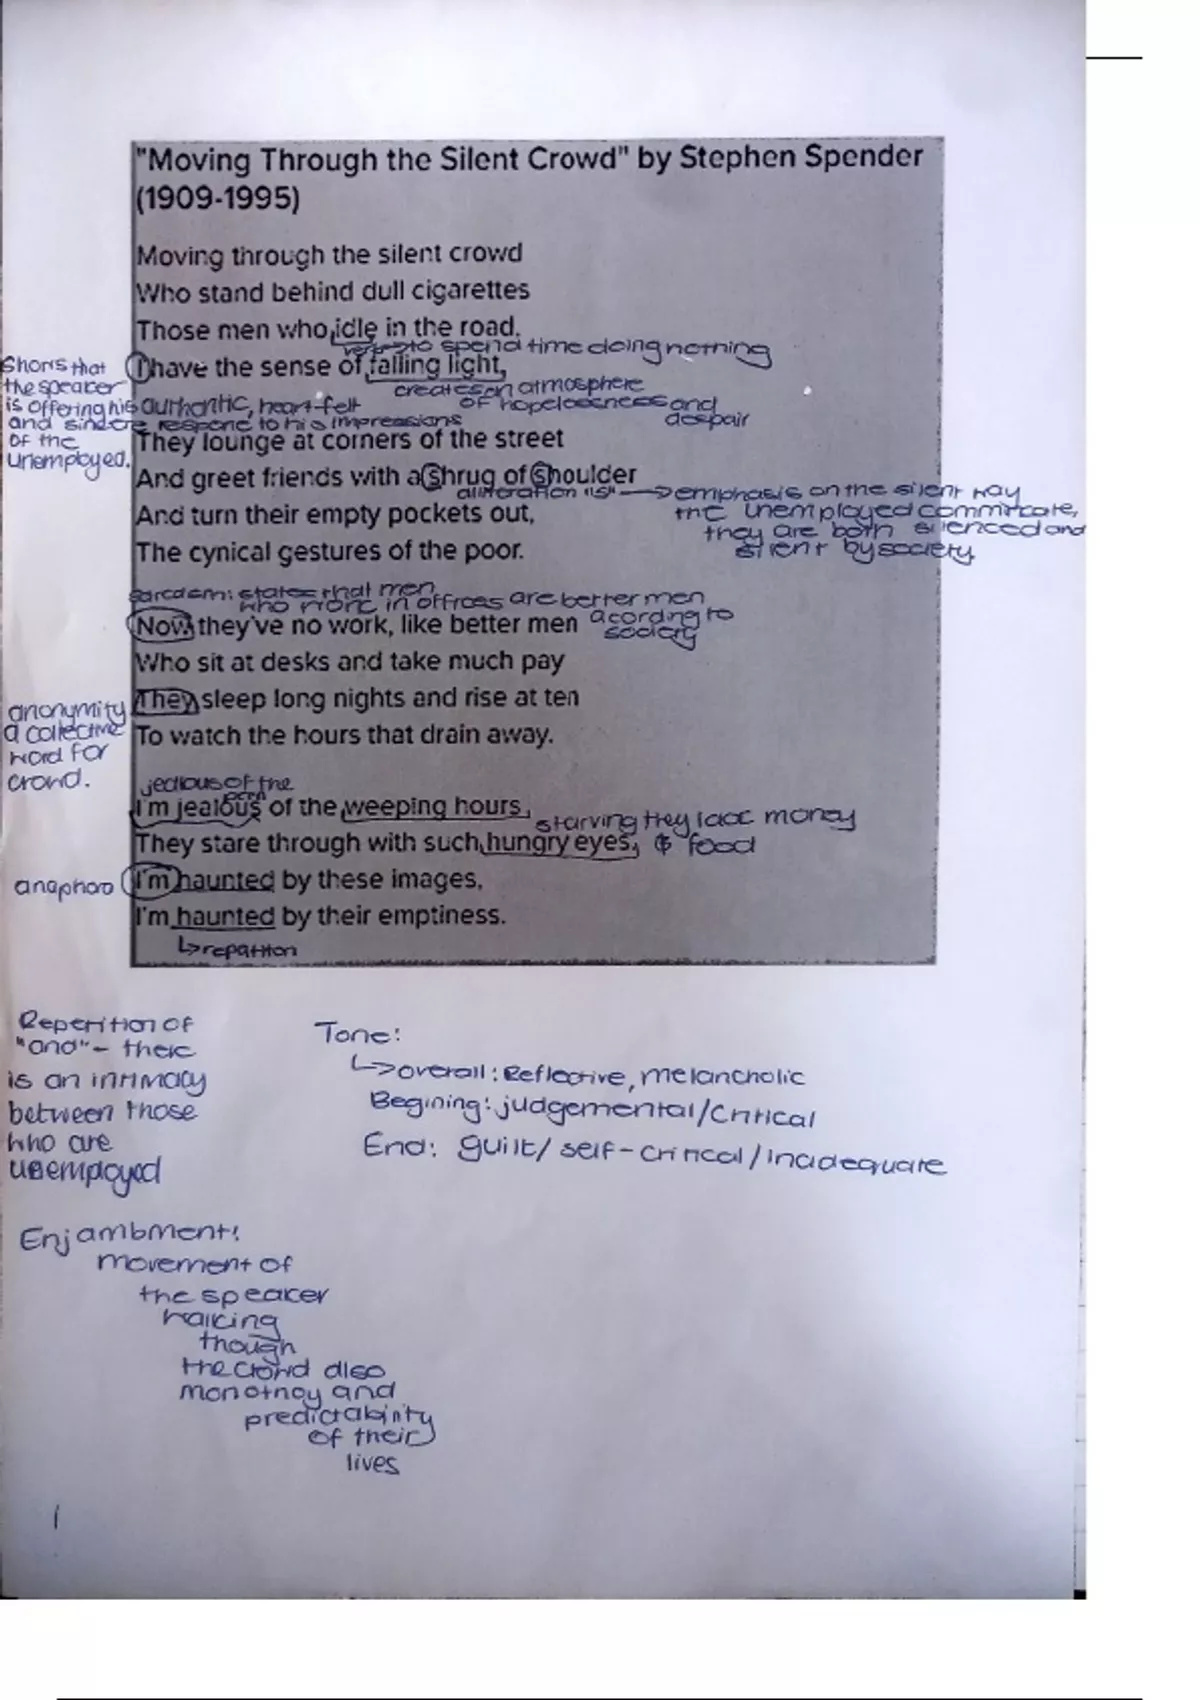 "Moving Through the Silent Crowd" by Stephen Spender
(1909-1995)
Moving through the silent crowd
Who stand behind dull cigarettes
Those men who idle in the road,
to spend time doing nothing
I have the sense of falling light,
creates an atmosphere
of hopelessness and
despair
Shows that
the speaker
is offering his authantic, heart-felt
and sincere response to his impressions
of the
unemployed.
They lounge at corners of the street
And greet friends with a shrug of shoulder
alliteration "s" → emphasis on the silent way
the unemployed commincate,
they are both silenced and
silent by society
And turn their empty pockets out,
The cynical gestures of the poor.
sarcasm: states that men
who work in offices are better men
acording to
society
Now they've no work, like better men
Who sit at desks and take much pay
They sleep long nights and rise at ten
To watch the hours that drain away.
anonymity
a collective
word for
crowd.
jealous of the
I'm jealous of the weeping hours
They stare through with such hungry eyes,
starving they lack money
& food
I'm haunted by these images,
anaphora
I'm haunted by their emptiness.
↳ repatition
Repetition of
"and" - there
is an intimacy
between those
who are
unemployed
Tone:
↳ overall: Reflective, melancholic
Begining: judgemental/critical
End: guilt/ self-critical/inadequate
Enjambment:
movement of
the speaker
walking
though
the crowd also
monotnoy and
predictability
of their
lives
1